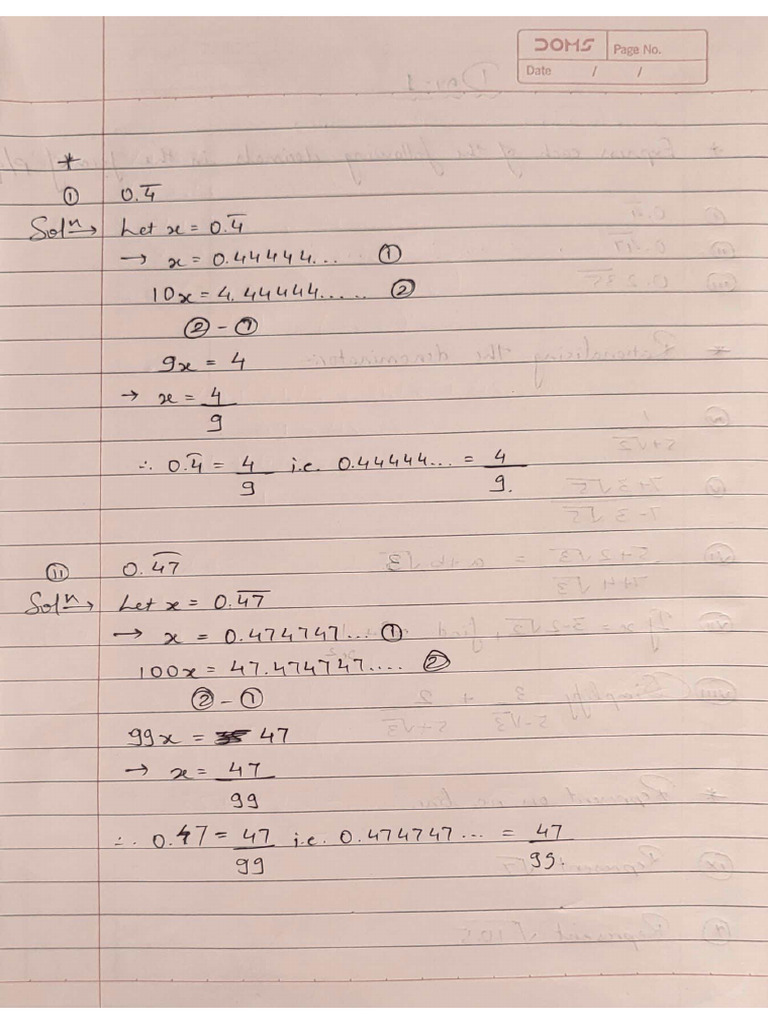 DOMS Page No.
Date / /
*
① 0.4̅
Solⁿ→ Let x = 0.4̅
→ x = 0.44444... ①
10x = 4.44444..... ②
② - ①
9x = 4
→ x = 4/9
∴ 0.4̅ = 4/9 i.e. 0.44444... = 4/9.
ⓘⓘ 0.4̅7̅
Solⁿ→ Let x = 0.4̅7̅
→ x = 0.474747... ①
100x = 47.474747.... ②
② - ①
99x = 47
→ x = 47/99
∴ 0.47 = 47/99 i.e. 0.474747... = 47/99.